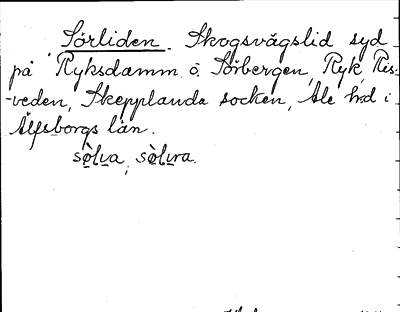 Sörliden. Skogsvägslid syd
på Ryksdamm. ö. Sörbergen, Ryk, Ris-
-veden, Skepplanda socken, Ale hrd i
Älfsborgs län.